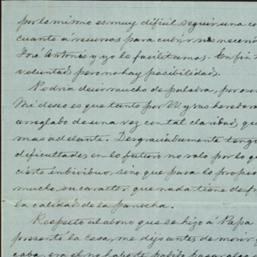 por lo mismo es muy difícil seguir una co
cuanto a recursos para cubrir mis necesi
José Antonio y yo le facilitamos. En fin
voluntad pero no hay posibilidad.
Podría decir mucho de palabra, por
Mi deseo es que tanto por M y sus herederos
arreglado de una vez con tal claridad, que
mas adelante. Desgraciadamente tengo
dificultades en lo futuro no solo por lo que
cierto individuo, sino que para lo propio
mucho, su caracter que nada tiene de fr
la calidad de la
Respecto al abono que se hizo a Papa
presente la casa, me dijo antes de morir, q